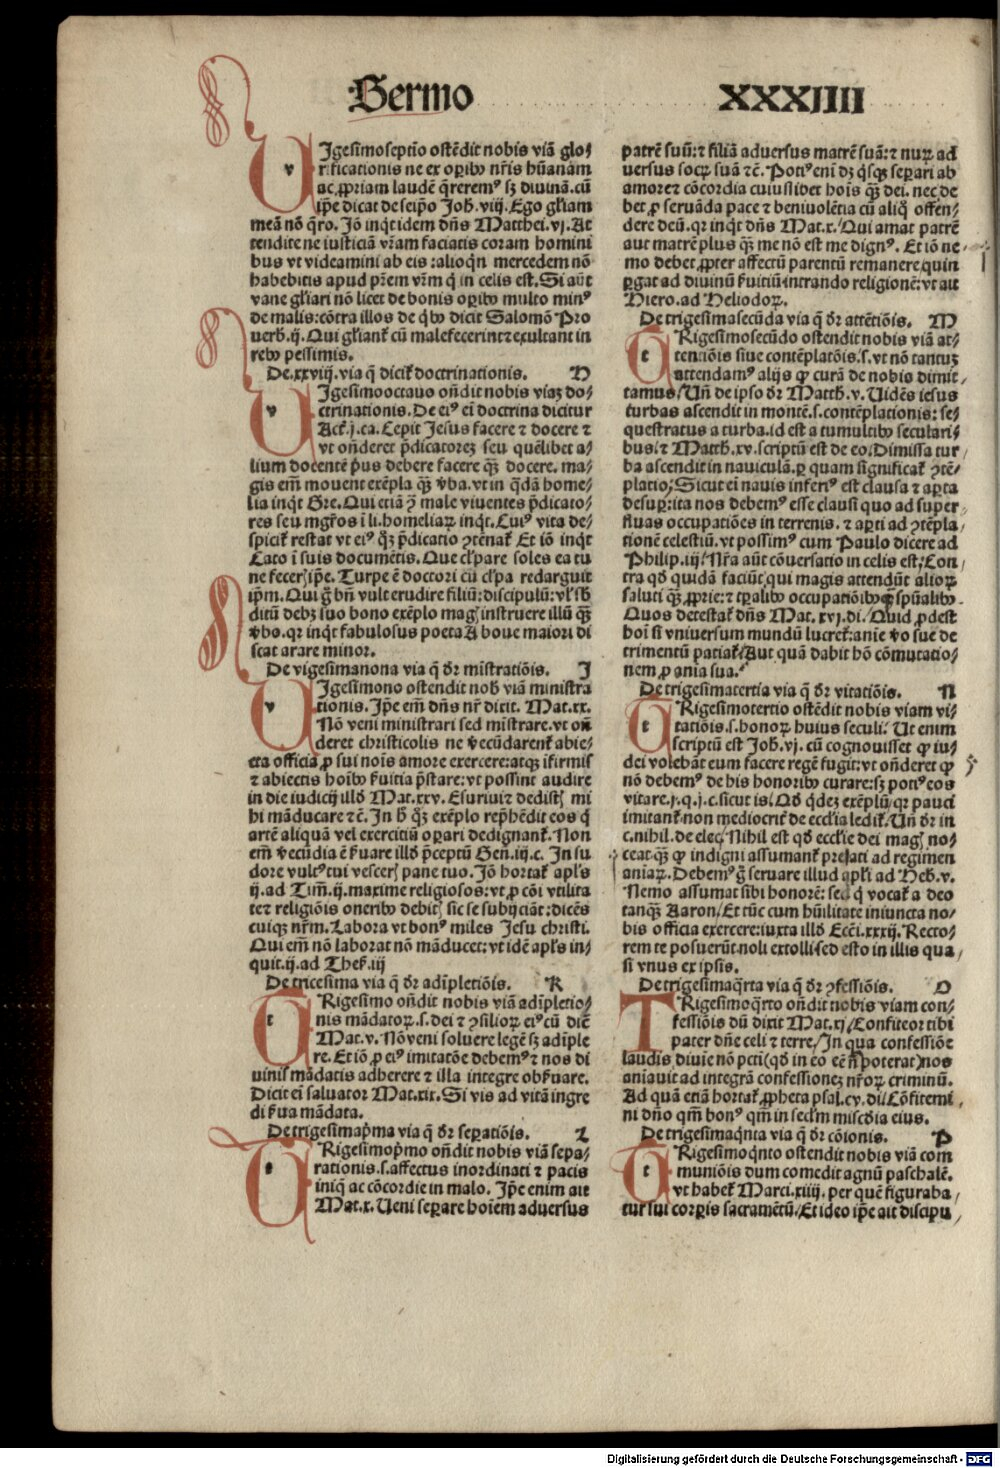 Sermo XXXIIII
VIgesimoseptīo ostēdit nobis viā glo⸗
rificationis ne ex oꝑibꝰ nr̄is hūanam
ac ꝓpriam laudē q̄reremꝰ sꝫ diuinā. cū
ip̄e dicat de seip̄o Joh. viij. Ego gl̄iam
meā nō q̄ro. Jō inq̇t idem dn̄s Matthei. vj. At
tendite ne iusticiā vr̄am faciatis coram homini
bus vt videamini ab eis: alioq̇n mercedem nō
habebitis apud pr̄em vr̄m q̇ in celis est. Si aūt
vane gl̄iari nō licet de bonis oꝑibꝰ multo minꝰ
de malis: cōtra illos de q̇bꝰ dicit Salomō Pro
uerb. ij. Qui gl̄iant̄ cū malefecerint ⁊ exultant in
rebꝰ pessimis.
De. xxviij. via q̄ dicit̄ doctrinationis. H
VIgesimooctauo on̄dit nobis viaꝫ do⸗
ctrinationis. De eiꝰ ei̅ doctrina dicitur
Act̄. j. ca. Cepit Jesus facere ⁊ docere ⁊
vt on̄deret p̄dicatoreꝫ seu quēlibet a⸗
lium docentē pͥus debere facere qꝫ̄ docere. ma⸗
gis em̄ mouent exēpla qꝫ̄ v̄ba. vt in q̇dā home⸗
lia inq̇t Gre. Qui etiā ꝯ male viuentes p̄dicato⸗
res seu mgr̄os i̅ li. homeliaꝝ inq̇t. Cuiꝰ vita de⸗
spicit̄ restat vt eiꝰ qꝫ̄ p̄dicatio ꝯtēnat̄ Et iō inq̇t
Cato i̅ suis documētis. Que cl̄pare soles ea tu
ne feceris ip̄e. Turpe ē doctori cū cl̄pa redarguit
ip̄m. Qui g̊ bn̄ vult erudire filiū: discipulū: vl̄ sb̄
ditū debꝫ suo bono exēplo magis instruere illū qꝫ̄
v̄bo. qꝛ inq̇t fabulosus poeta A boue maiori di
scat arare minor.
De vigesimanona via q̄ dr̄ mīstratiōis. J
VIgesimono ostendit nob̄ viā ministra
tionis. Jp̄e em̄ dn̄s nr̄ dicit. Mat. xx.
Nō veni ministrari sed mīstrare. vt on̄
deret christicolis ne v̄ecūdarent̄ abie⸗
cta officia ꝓ sui noīs amore exercere: atqꝫ ifirmis
⁊ abiectis hoībꝰ ẜuitia p̄stare: vt possint audire
in die iudicij illd̄ Mat. xxv. Esuriui ⁊ dedistis mi
hi māducare ⁊ c̄. In h̄ qꝫ̄ exēplo rep̄hēdit eos q̇
artē aliquā vel exercitiū oꝑari dedignant̄. Non
em̄ v̄ecūdia ē ẜuare illd̄ p̄ceptū Gen̄. iij. c. In su
dore vultꝰ tui vesceris pane tuo. Jō hortat̄ apl̄s
ij. ad Tim̄. ij. maxime religiosos: vt ꝓ cōi vtilita
te ⁊ religiōis oneribꝰ debitis sic se subijciāt: dicēs
cuiqꝫ nr̄m. Labora vt bonꝰ miles Jesu christi.
Qui em̄ nō laborat nō māducet: vt idē apl̄s in⸗
quit. ij. ad Thes̄. iij
De tricesima via q̄ dr̄ adīpletiōis. K
TRigesimo on̄dit nobis viā adīpletio⸗
nis mādatoꝝ. s. dei ⁊ ꝯsilioꝝ eiꝰ cū dic̄
Mat. v. Nō veni soluere legē sꝫ adīple
re. Et iō ꝓ eiꝰ imitatōe debemꝰ ⁊ nos di
uinis mādatis adherere ⁊ illa integre obẜuare.
Dicit ei̅ saluator Mat. xix. Si vis ad vitā ingre
di ẜua mādata.
De trigesimapͥma via q̄ dr̄ seꝑatiōis. L
TRigesimopͥmo on̄dit nobis viā sepa⸗
rationis. s. affectus inordinati ⁊ pacis
iniq̄ ac cōcordie in malo. Jp̄e enim ait
Mat. x. Ueni seꝑare hoīem aduersus
patrē suū: ⁊ filiā aduersus matrē suā: ⁊ nuꝝ ad
uersus socꝝ suā ⁊ c̄. Potiꝰ eni̅ dꝫ q̇sqꝫ seꝑari ab
amore ⁊ cōcordia cuiuslibet hoīs qꝫ̄ dei. nec de
bet ꝓ seruāda pace ⁊ beniuolētia cū aliq̊ offen⸗
dere deū. qꝛ inq̇t dn̄s Mat. x. Qui amat patrē
aut matrē plus qꝫ̄ me nō est me dignꝰ. Et iō ne⸗
mo debet ꝓpter affectū parentū remanere quin
ꝑgat ad diuinū ẜuitiū intrando religionē: vt ait
Hiero. ad Heliodoꝝ.
De trigesimasecūda via q̄ dr̄ attētiōis. M
TRigesimosecūdo ostendit nobis viā at⸗
tentiōis siue contēplatōis. s. vt nō tantuꝫ
attendamꝰ alijs ꝙ curā de nobis dimit⸗
tamus. Un̄ de ipso dr̄ Matth. v. Uidēs iesus
turbas ascendit in montē. s. contēplationis: se⸗
questratus a turba. id est a tumultibꝰ seculari⸗
bus. ⁊ Matth. xv. scriptū est de eo. Dimissa tur⸗
ba ascendit in nauiculā. ꝑ quam significat̄ ꝯtē⸗
platio. Sicut ei̅ nauis inferiꝰ est clausa ⁊ aꝑta
desuꝑ: ita nos debemꝰ esse clausi quo ad super⸗
fluas occupatiōes in terrenis. ⁊ aꝑti ad ꝯtēpla⸗
tionē celestiū. vt possimꝰ cum Paulo dicere ad
Philip. iij. Nr̄a aūt cōuersatio in celis est. Con⸗
tra qd̄ quidā faciūt qui magis attendūt alioꝝ
saluti qꝫ̄ ꝓprie: ⁊ tꝑalibꝰ occupatiōibꝰ qꝫ̄ spūalibꝰ.
Quos detestat̄ dn̄s Mat. xvj. di. Quid ꝓdest
hoi̅ si vniuersum mundū lucret̄: anie v̄o sue de
trimentū patiat̄. Aut quā dabit hō cōmutatio⸗
nem ꝓ aniā sua.
De trigesimatertia via q̄ dr̄ vitatiōis. N
TRigesimotertio ostēdit nobis viam vi⸗
tatiōis. s. honoꝝ huius seculi. Ut enim
scriptū est Joh. vj. cū cognouisset ꝙ iu⸗
dei volebāt eum facere regē fugit: vt on̄deret ꝙ
nō debemꝰ de his honoribꝰ curare: sꝫ potiꝰ eos
vitare. j. q. j. c. sicut is. Qd̄ q̇deꝫ exēplū qꝛ pauci
imitant̄ non mediocrit̄ de eccl̄ia ledit̄. Un̄ dr̄ in
c. nihil. de elec. Nihil est qd̄ eccl̄ie dei magis no⸗
ceat qꝫ̄ ꝙ indigni assumant̄ prelati ad regimen
aniaꝝ. Debemꝰ g̊ seruare illud apl̄i ad Heb̄. v.
Nemo assumat sibi honorē: sed q̇ vocat̄ a deo
tanqꝫ̄ Aaron. Et tūc cum hūilitate iniuncta no⸗
bis officia exercere: iuxta illd̄ Ecci̅. xxxij. Recto⸗
rem te posuerūt noli extolli sed esto in illis qua⸗
si vnus ex ipsis.
De trigesimaq̇rta via q̄ dr̄ ꝯfessiōis. O
TRigesimoq̇rto on̄dit nobis viam con⸗
fessiōis dū dixit Mat. xj. Confiteor tibi
pater dn̄e celi ⁊ terre. In qua confessiōe
laudis diuīe nō pcti̅ (qd̄ in eo eē n̄ poterat) nos
aniauit ad integrā confessioneꝫ nr̄oꝝ criminū.
Ad quā etiā hortat̄ ꝓpheta psal. cv. di. Cōfitemi
ni dn̄o qm̄ bonꝰ qm̄ in secl̄m miscd̄ia eius.
De trigesimaq̇nta via q̄ dr̄ cōionis. P
TRigesimoq̇nto ostendit nobis viā com
muniōis dum comedit agnū paschalē.
vt habet̄ Marci. xiiij. per quē figuraba⸗
tur sui corꝑis sacramētū. Et ideo ip̄e ait discipu⸗
Digitalisierung gefördert durch die Deutsche Forschungsgemeinschaft - DFG